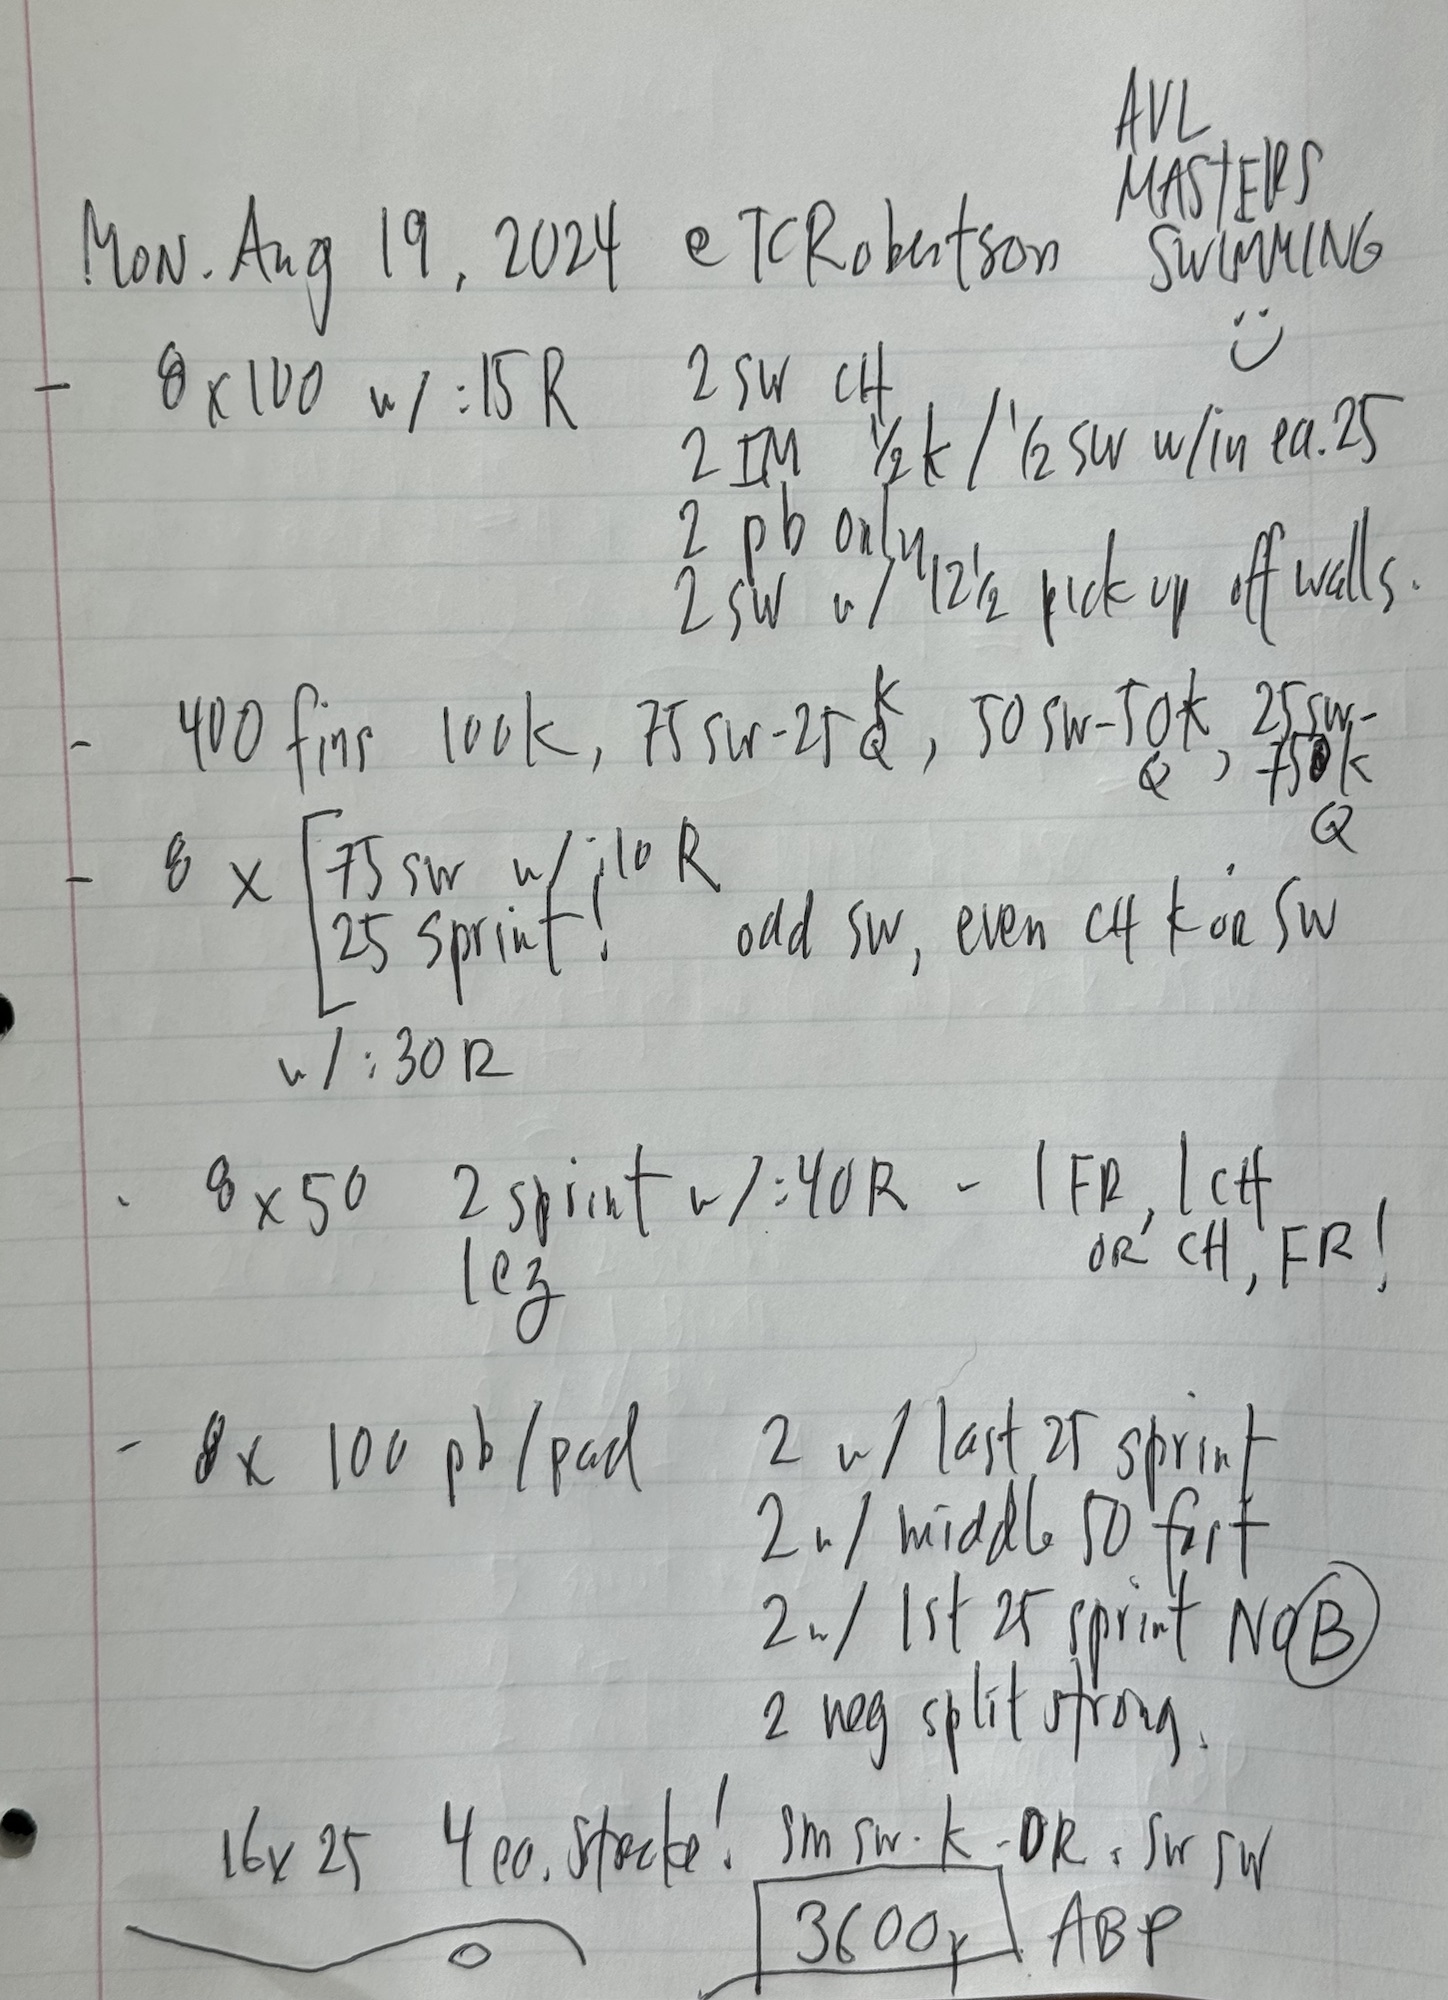 AVL
MASTERS
SWIMMING
Mon. Aug 19, 2024 @ TCRobertson
- 8 x 100 w/ :15 R 2 SW CH
2 IM ½ k / ½ SW w/in ea. 25
2 pb only
2 SW w/ 12½ pick up off walls.
- 400 fins 100k, 75 sw-25k Q, 50 sw-50k Q, 25 sw-75k Q
- 8 x [75 sw w/ :10 R
25 sprint! odd SW, even CH k OR SW
w/ :30 R
- 8 x 50 2 sprint w/ :40 R - 1 FR, 1 CH
1 ez OR CH, FR!
- 8 x 100 pb/pad 2 w/ last 25 sprint
2 w/ middle 50 fast
2 w/ 1st 25 sprint NO B
2 neg split strong.
16 x 25 4 ea. stroke! SM SW - K - DR - SW SW
3600y ABP